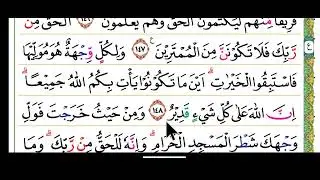 فَرِيقًا مِّنْهُمْ لَيَكْتُمُونَ الْحَقَّ وَهُمْ يَعْلَمُونَ ﴿١٤٦﴾ الْحَقُّ مِنْ
رَّبِّكَ فَلَا تَكُونَنَّ مِنَ الْمُمْتَرِينَ ﴿١٤٧﴾ وَلِكُلٍّ وِّجْهَةٌ هُوَ مُوَلِّيهَا
فَاسْتَبِقُوا الْخَيْرٰتِ اَيْنَ مَا تَكُونُوا يَأْتِ بِكُمُ اللّٰهُ جَمِيعًا
اِنَّ اللّٰهَ عَلٰى كُلِّ شَيْءٍ قَدِيرٌ ﴿١٤٨﴾ وَمِنْ حَيْثُ خَرَجْتَ فَوَلِّ
وَجْهَكَ شَطْرَ الْمَسْجِدِ الْحَرَامِ وَاِنَّهُ لَلْحَقُّ مِنْ رَّبِّكَ وَمَا